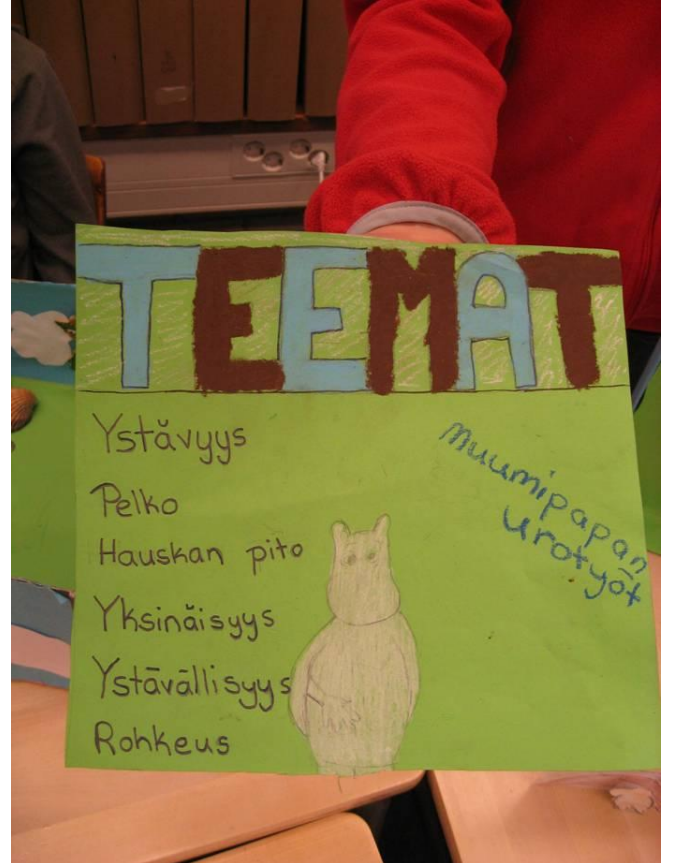 TEEMAT
Ystävyys
Pelko
Hauskan pito
Yksinäisyys
Ystävällisyys
Rohkeus
Muumipapan
urotyöt